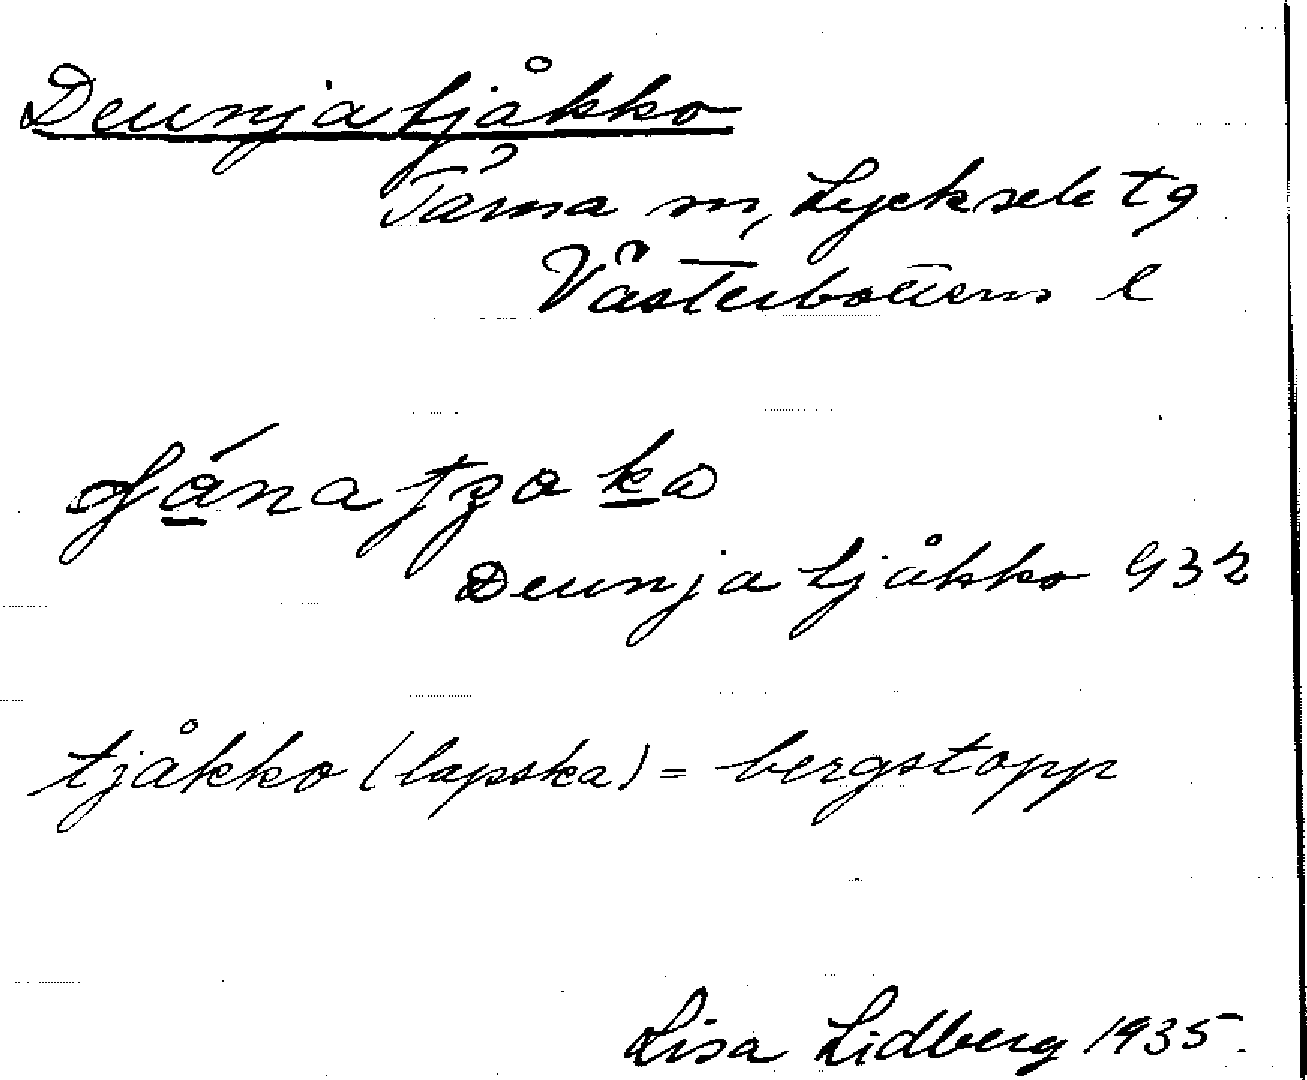 Deunjatjåkko
Tärna sn, Lycksele tg
Västerbottens l
Deunjatjåkko 932
tjåkko (lapska) = bergstopp
Lisa Lidberg 1935.